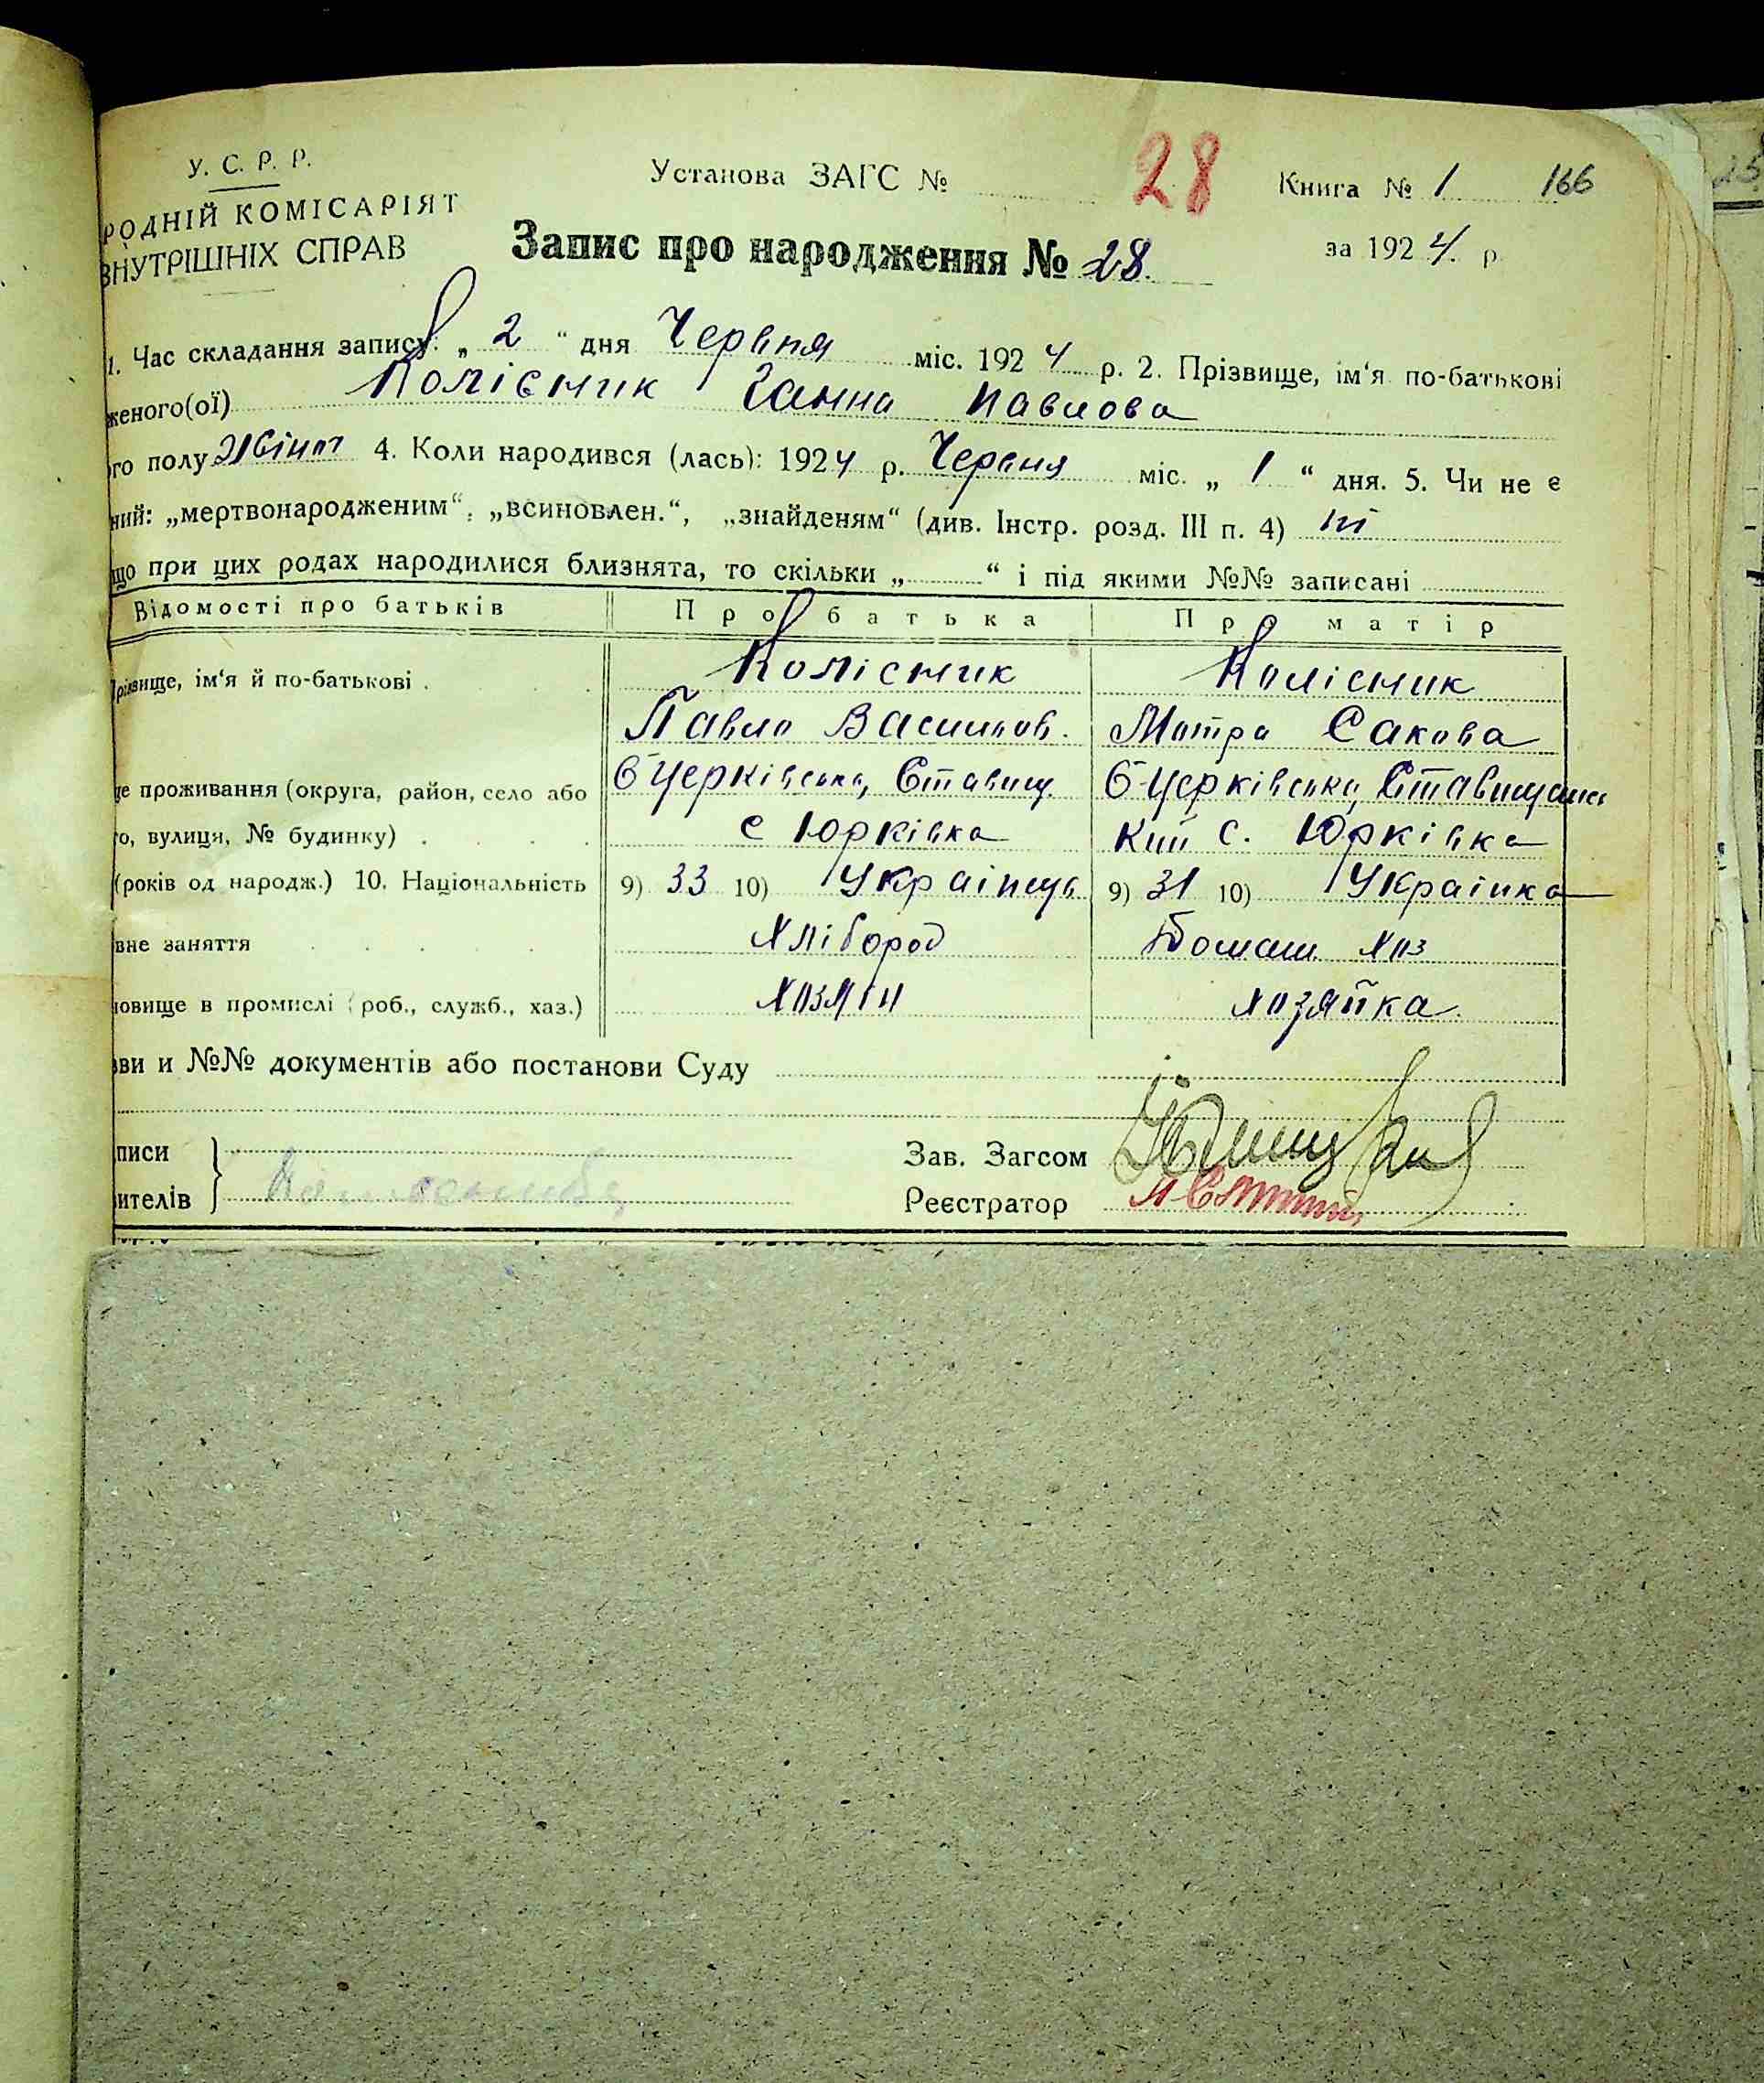 У. С. Р. Р.
Установа ЗАГС №
28
Книга № 1
166
РОДНІЙ КОМІСАРІЯТ
ВНУТРІШНІХ СПРАВ
Запис про народження № 28.
за 1924 р.
1. Час складання запису: „ 2 “ дня Червня міс. 1924 р. 2. Прізвище, ім‘я по-батькові
женого(ої) Колісник Ганна Павлова
го полу Жіноч 4. Коли народився (лась): 1924 р. Червня міс. „ 1 “ дня. 5. Чи не є
ний: „мертвонародженим“, „всиновлен.“, „знайденям“ (див. Інстр. розд. III п. 4) ні
що при цих родах народилися близнята, то скільки „ “ і під якими №№ записані
Відомості про батьків Про батька Про матір
Прізвище, ім‘я й по-батькові . Колісник Колісник
Павло Васильов. Мотра Сакова
це проживання (округа, район, село або Б Церківська, Ставищ. Б-Церківська, Ставищанс
то, вулиця, № будинку) . с Юрківка кий с. Юрківка
(років од народж.) 10. Національність 9) 33 10) Українець 9) 31 10) Українка
вне заняття Хлібороб Домаш. Хоз
новище в промислі (роб., служб., хаз.) Хозяїн хозяйка.
зви и №№ документів або постанови Суду
писи
Зав. Загсом
ителів
Реєстратор